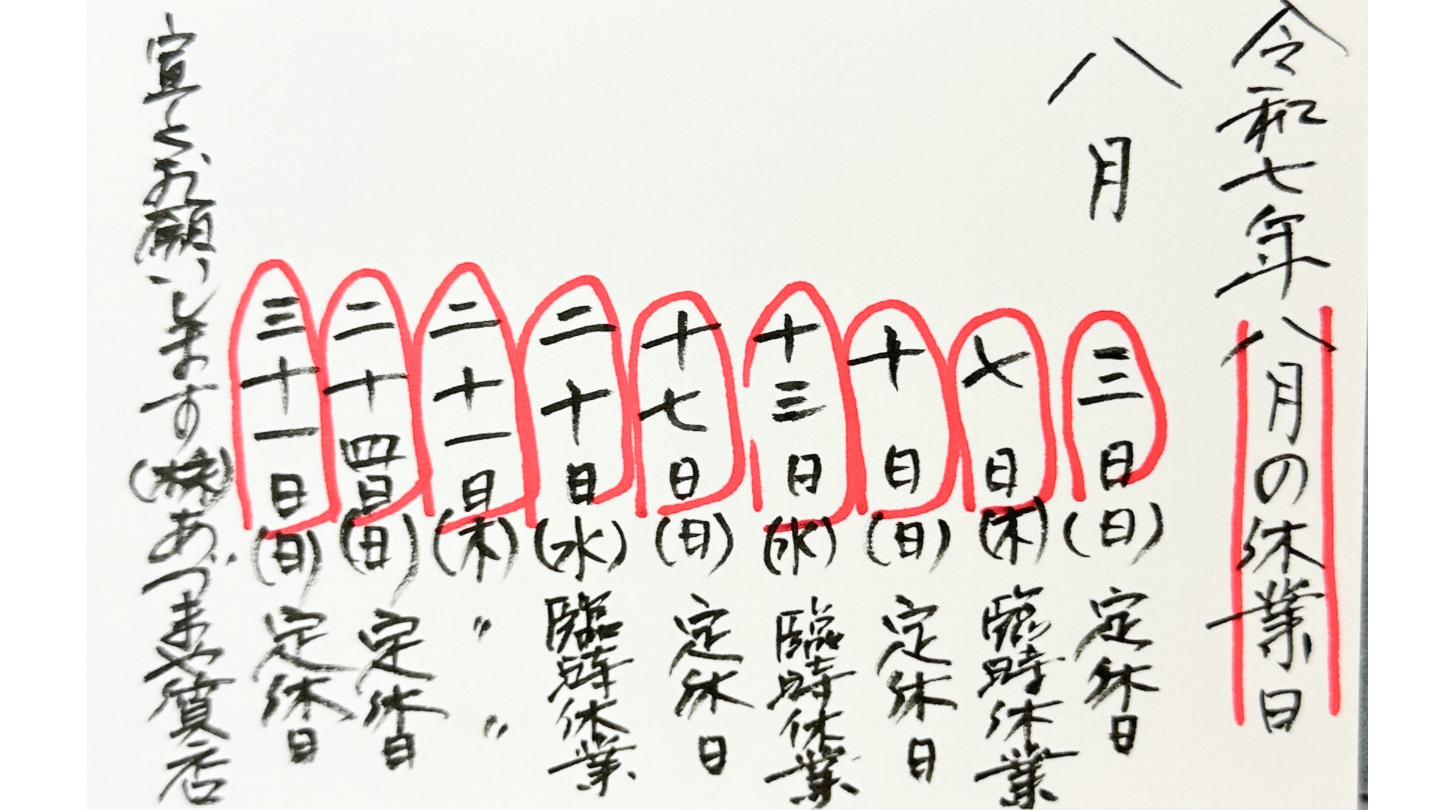 令和七年八月の休業日
八月
三日(日)定休日
七日(木)臨時休業
十日(日)定休日
十三日(水)臨時休業
十七日(日)定休日
二十日(水)臨時休業
二十一日(木)〃〃
二十四日(日)定休日
三十一日(日)定休日
宜しくお願いします(株)あづまや質店